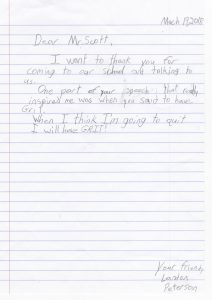 March 19, 2018
Dear Mr. Scott,
I want to thank you for
coming to our school and talking to
us.
One part of your speech that really
inspired me was when you said to have
Grit.
When I think I'm going to quit
I will have GRIT!
Your friend,
Landon
Peterson